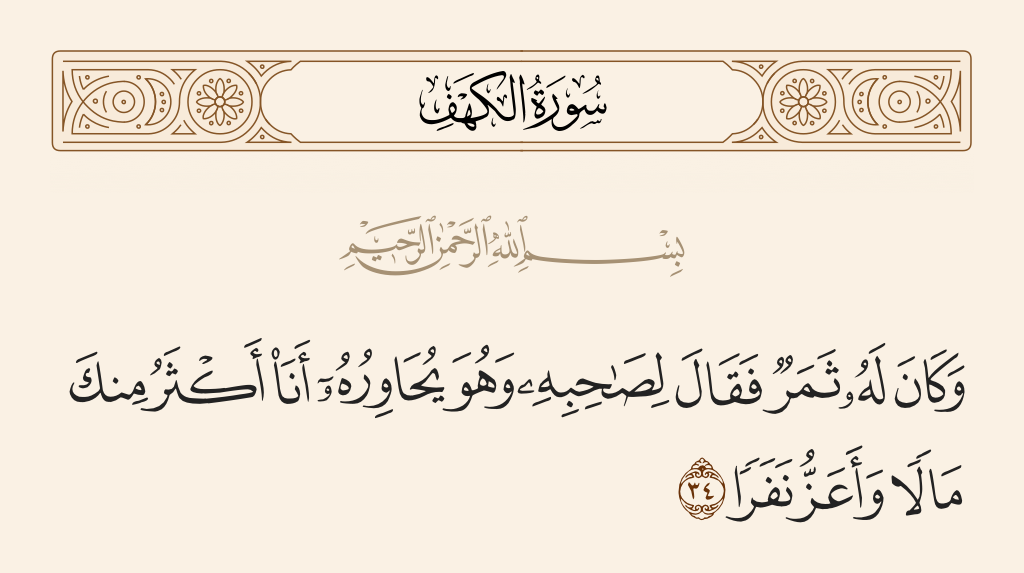 سُورَةُ الكَهۡفِ
بِسۡمِ ٱللَّهِ ٱلرَّحۡمَٰنِ ٱلرَّحِيمِ
وَكَانَ لَهُۥ ثَمَرٞ فَقَالَ لِصَٰحِبِهِۦ وَهُوَ يُحَاوِرُهُۥٓ أَنَا۠ أَكۡثَرُ مِنكَ
مَالٗا وَأَعَزُّ نَفَرٗا ٣٤